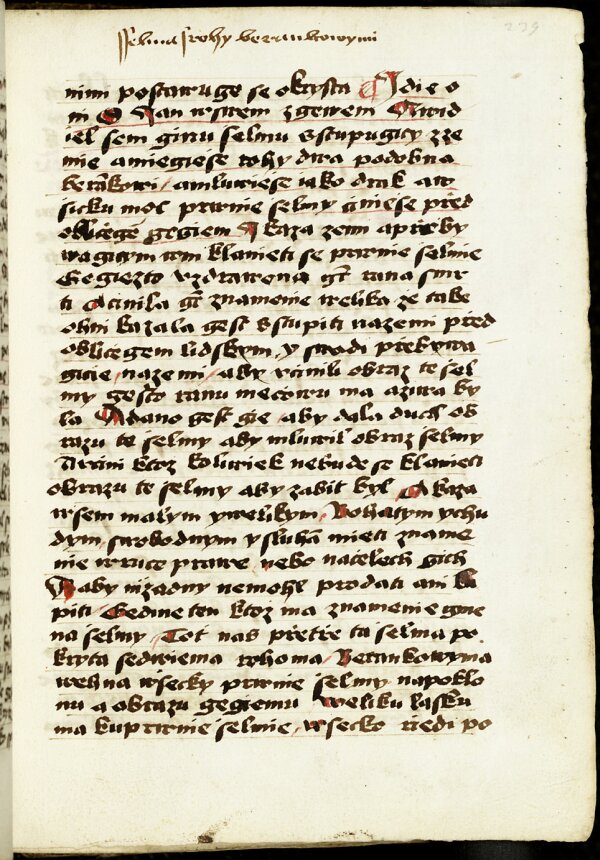 sselma s rohy berankowymi
nimi postawuge se okrysta Jdie o
ni Jan wswem zgewem A wid
iel sem ginu selmu wstupugicy zze
mie a miegiese rohy dwa podobna
berakowi a mluwiese iako drak a w
sicku moc prwnie selmy cziniese pred
obliczege gegiem A kaza zemi a prieby
wagicym wni klanieti se prwnie selmie
Gegiezto vzdrawena gest rana smr
ti A cinila gest znamenie welika ze take
ohni kazala gest wstupiti nazemi pred
oblicegem lidskym y swodi prebywa
gicie nazemi aby vcinili obraz te sel
my gesto ranu mecowu ma a ziwa by
la A dano gest gie aby dala duch ob
razu te selmy aby mluwil obraz selmy
A wcini ktoz koliwiek nebude se klanieti
obrazu te selmy aby zabit byl A kaza
wsem malym y welikym Bohatym y chu
dym swobodnym y sluha mieti zname
nie wruce prawe nebo nacelech gich
A aby nizadny nemohl prodati ani ku
piti Gedine ten ktoz ma znamenie gme
na selmy Tot nas pretre ta selma po
kryta sedwiema rohoma Berankowyma
wedna wsecky prwnie selmy napoklo
nu a obrazu gegiemu weliku lasku
ma kuprwnie selmie wsecko riedi po